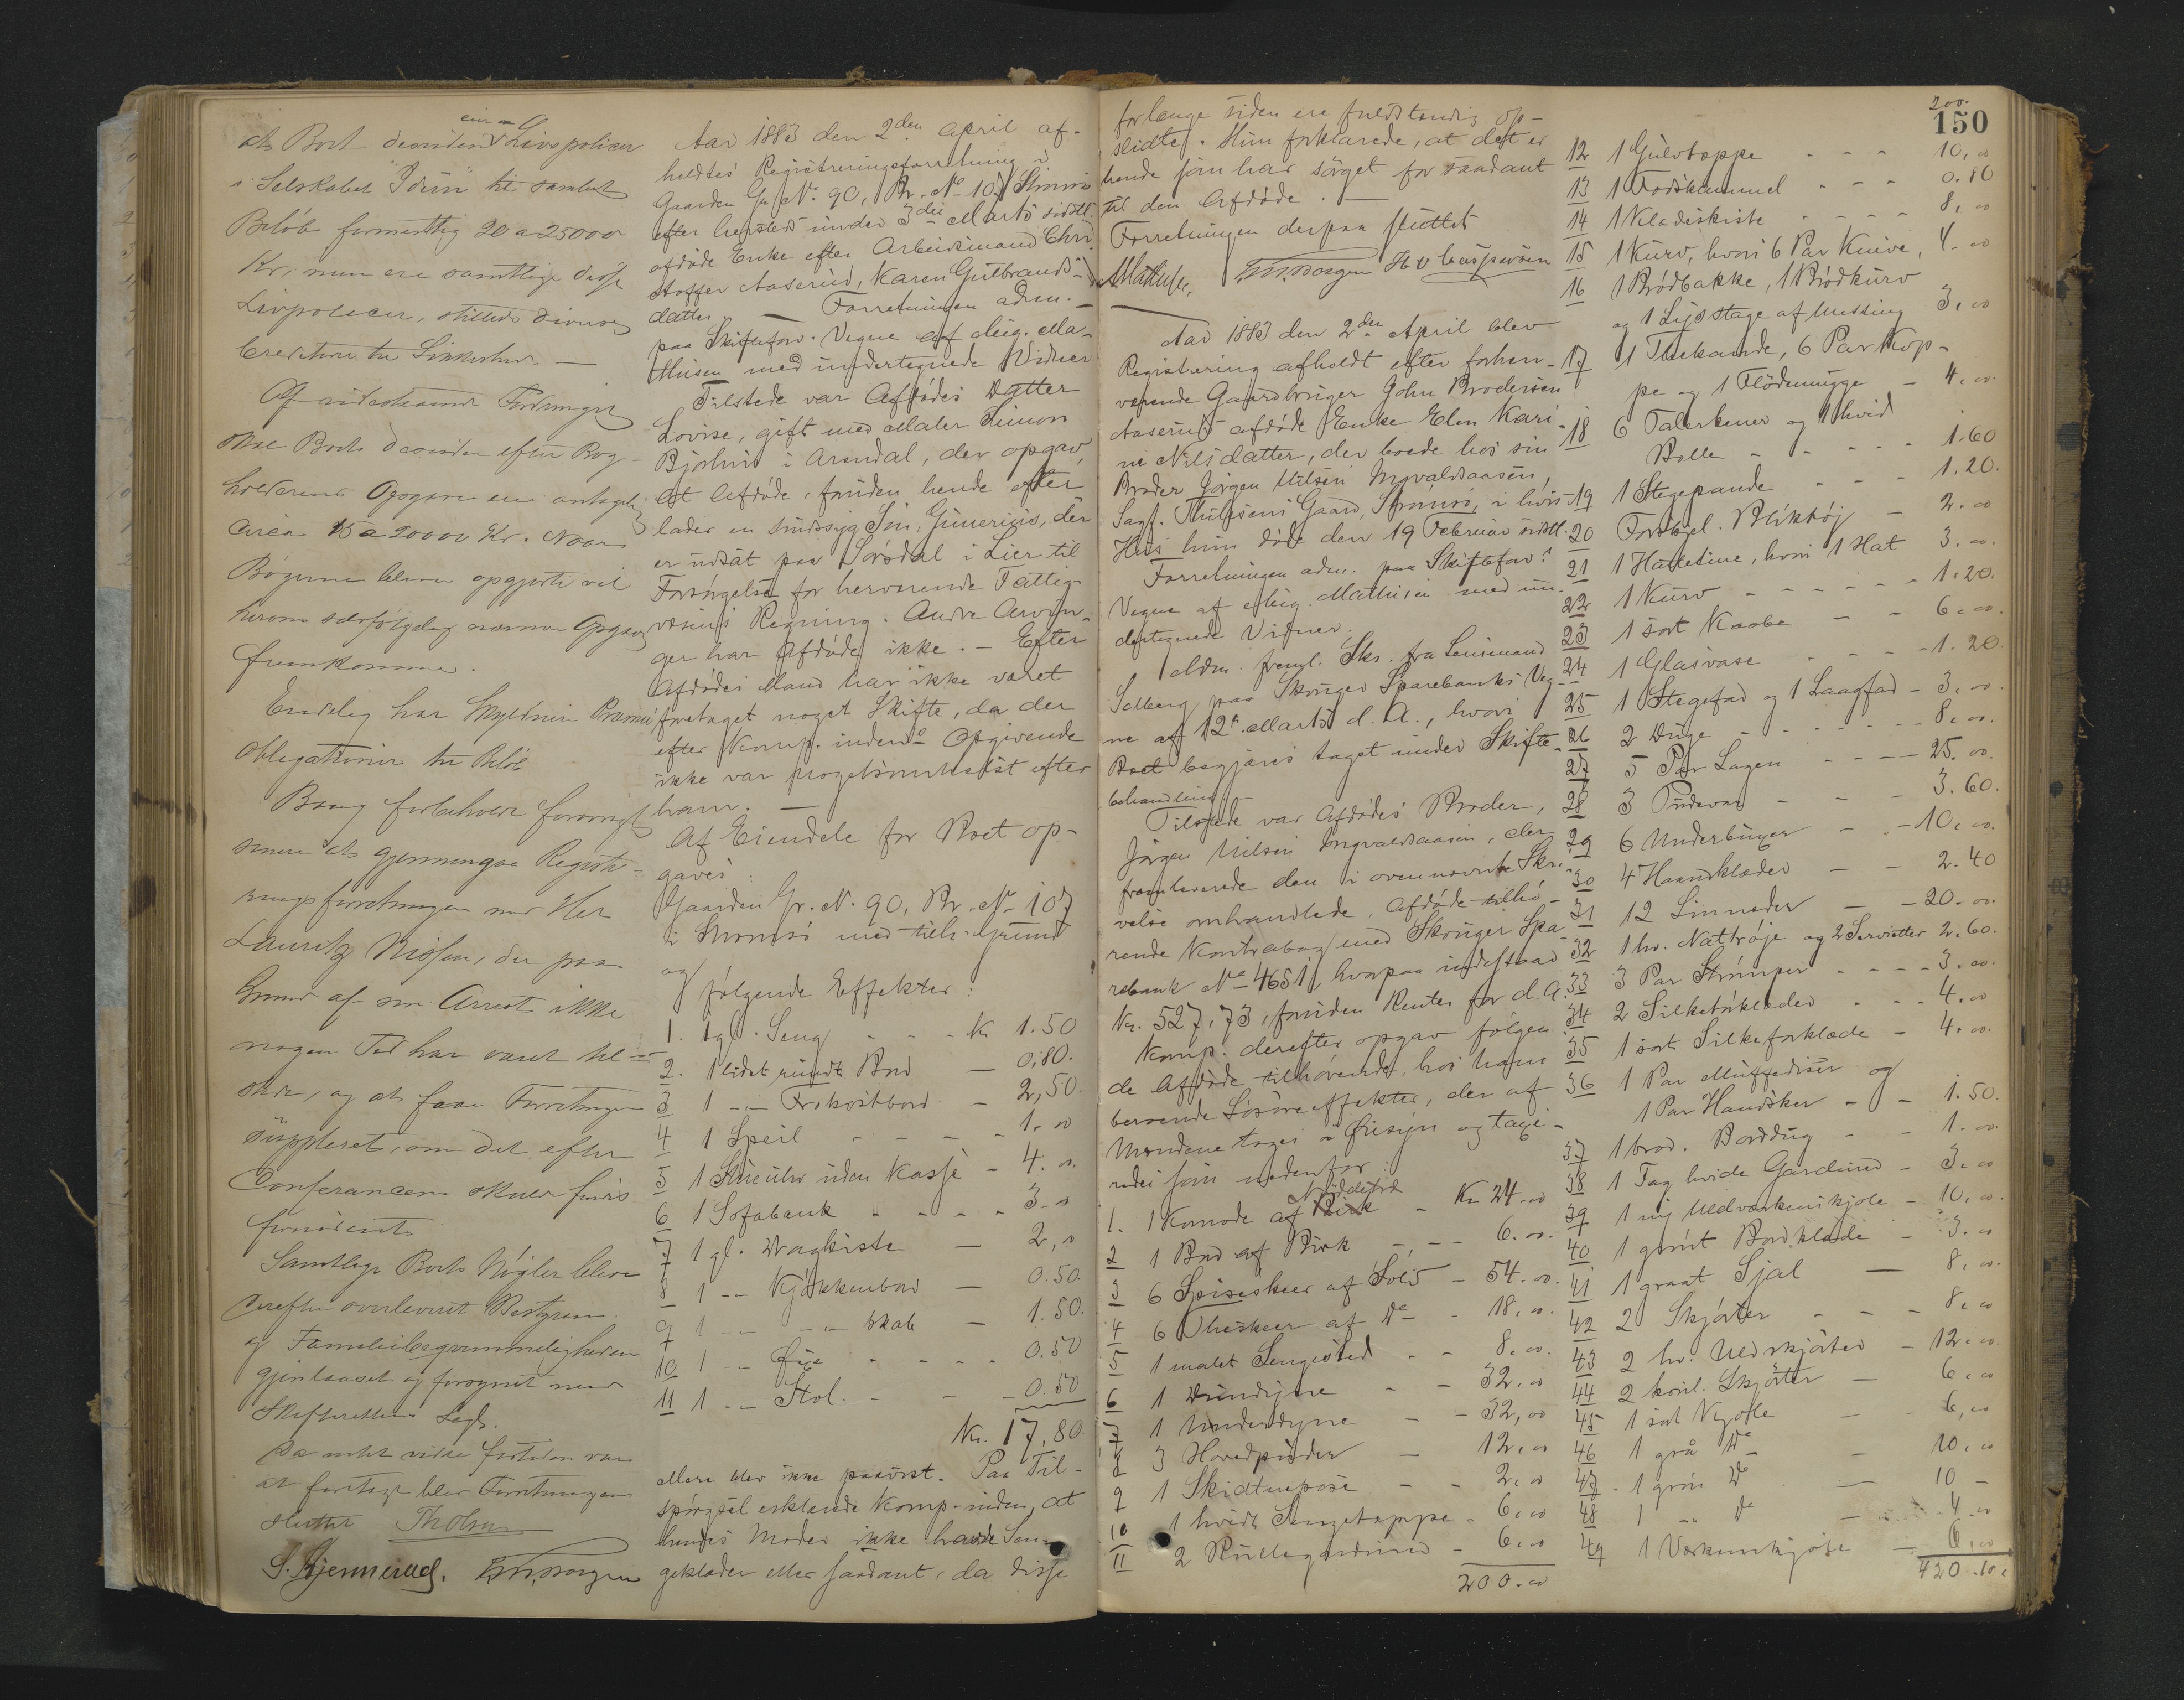 at Boet desuden einer Livspolicer
i Selskabet "Idun" til samlet
Beløb formentlig 20 a 25000
Kr, men ere samtlige disse
Livpolicer, stillede diverse
Creditore til Sikkerhed. —
Af udestaaende Fordringer
skal Boets desuden efter Bog-
holderens Opgave ere antagelig
circa 15 a 20000 Kr. Naar
Bøgerne bliver opgjorte vil
herom selvfølgelig nærmere Opgave
fremkomme.
Endelig har Skyldneren Præmie
obligationer til Beløb
Boug forbeholdt forøvrigt
senere at gjennemgaa Registre-
ringsforretningen med Her
Lauritz Nissen, der paa
Grund af sin Arrest ikke
nogen Tid har været til-
stede, og at faae Forretningen
suppleret, om det efter
Conferancen skulde findes
fornødent
Samtlige Boets Nøgler blev
derefter overleveret Bestyreren
og Familiebegvemmeligheden
gjenlaaset og forsynet med
Skifterettens Segl.
Da intet videre fortiden var
at foretage blev Forretningen
sluttet Th Olsen
S. Bjennerud.
Aar 1883 den 2den April af-
holdtes Registreringsforretning i
Gaarden Gr. No. 90, Br. No 107 Strømsø
efter hersteds under 3die Marts sidstl.
afdøde Enke efter Arbeidsmand Chri-
stoffer Aaserud, Karen Gulbrands-
datter. — Forretningen adm.
paa Skiftefov. Vegne af Aug. Ma-
thisen med undertegnede Vidner
Tilstede var Afdødes Datter
Lovise, gift med Maler Simon
Bjørhus i Arendal, der opgav,
at Afdøde, foruden hende efter-
lader en sindssyg Søn, Gunerius, der
er udsat paa Sørsdal i Lier til
Forsørgelse for herværende Fattig-
væsens Regning. Andre Arvin-
ger har Afdøde ikke. — Efter
Afdødes Mand har ikke været
foretaget noget Skifte, da der
efter Komp. inden Opgivende
ikke var nogetsomhelst efter
ham. —
Af Eiendele for Boet op-
gaves:
Gaarden Gr. N. 90, Br. No 107
i Strømsø med tilh. Grund
og
følgende Effekter:
1. 1 gl. Seng - - - Kr 1.50
2. 1 lidet rundt Bord — 0,80.
3 1 -"- Frokostbord - 2,50.
4 1 Speil - - - - 1. 00
5 1 Stueuhr uden Kasse - 4. 00.
6 1 Sofabænk - - - - 3. 00
7 1 gl. Dragkiste — 2, 00
8 1 -"- Kjøkkenbord — 0.50.
9 1 -"- -"- skab — 1.50.
10 1 -"- Øxe - - - - 0.50
11 1 -"- Stol. - - - 0.50
Kr. 17,80.
Mere blev ikke paavist. Paa Til-
spørgsel erklærede Komp.inden, at
hendes Moder ikke havde Sen-
geklæder eller saadant, da disse
forlænge siden ere fuldstændig op-
slidte. Hun forklarede, at det er
hende som har sørget for saadant
til den Afdøde. —
Forretningen derpaa sluttet
AMathisen. H O Caspersen
Aar 1883 den 2den April blev
Registrering afholdt efter forhen-
værende Gaardbruger John Brodersen
Aaseruds afdøde Enke Elen Kari-
ne Nilsdatter, der boede hos sin
Broder Jørgen Nilsen Ingvaldsaasen,
Sagf. Thulesens Gaard, Strømsø, i hvis
Hus hun døde den 19 Februar sidstl.
Forretningen adm. paa Skiftefov.s
Vegne af Aug. Mathisen med un-
dertegnede Vidner.
Adm. freml. Skr. fra Lensmand
Solberg paa Skouger Sparebanks Veg-
ne af 12te Marts d. A., hvori
Boet begjæres taget under Skifte-
behandling
Tilstede var Afdødes Broder,
Jørgen Nilsen Ingvaldsaasen, der
fremleverede den i ovennævnte Skri-
velse omhandlede, Afdøde tilhø-
rende Kontrabog med Skouger Spa-
rebank No 4651, hvorpaa indestaar
Kr. 527,73, foruden Renter for d. A.
Komp. derefter opgav følgen-
de Afdøde tilhørende, hos ham
beroende Løsøreeffekter, der af
Mændene toges i Øiesyn og taxe-
redes som nedenfor:
1. 1 Komode af Birk Nøddetræ - Kr 24. 00
2 1 Bord af Birk - - - 6. 00.
3 6 Spiseskeer af Sølv - 54. 00.
4 6 Theskeer af Do - 18, 00.
5 1 malet Sengested - - 8, 00.
6 1 Dundyne - - 32. 00
7 1 Underdyne - - 32, 00
8 3 Hovedpuder — 12, 00
9 1 Skidtenpose - - 2, 00
10 1 hvidt Sengetæppe - 6, 00
11 2 Rullegardiner - 6. 00
200. 00
200.
150
12 1 Gulvtæppe - - - 10, 00
13 1 Fodskammel - - - 0.80
14 1 Klædeskiste - - - - 8, 00
15 1 Kurv, hvori 6 Par Knive, 4. 00
16 1 Brødbakke, 1 Brødkurv
og 1 Lysstage af Messing 3, 00
17 1 Thekande, 6 Par Kop-
pe og 1 Flødemugge - 4. 00.
18 6 Talerkener og 1 hvid
Bolle - - - - 1.60
19 1 Stegepande - - - 1.20.
20 Forskjel. Bliktøj - 2. 00
21 1 Hattetine, hvori 1 Hat 3. 00.
22 1 Kurv - - - - - 1.20.
23 1 sort Kaabe - - 6. 00.
24 1 Glasvase - - - - 1. 20.
25 1 Stegefad og 1 Laagfad - 3, 00.
26 2 Duge - - - - - 8, 00.
27 5 Par Lagen - - - - 25. 00.
28 3 Pudevar - - - 3. 60.
29 6 Underbuxer - - 10, 00.
30 4 Haandklæder - - 2. 40
31 12 Linneder - - 20. 00.
32 1 hv. Nattrøje og 2 Servietter 2. 60.
33 3 Par Strømper - - - - 3. 00.
34 2 Silketørklæder - - - 4. 00
35 1 sort Silkeforklæde - 4. 00.
36 1 Par Muffediser og
1 Par Handsker - - 1. 50.
37 1 brod. Borddug - - 1. 00.
38 1 Fag hvide Gardiner - 3. 00
39 1 ny Uldværkenskjole - 10, 00.
40 1 grønt Bordklæde - 3. 00
41 1 graat Sjal — 8, 00.
42 2 Skjørter - - - 8, 00
43 2 hv. Uldskjørter - 12. 00.
44 2 koul. Skjørter - 6, 00
45 1 sort Kjole - 6, 00
46 1 grå Do - 10, 00
47 1 grøn Do — 10 -
48 1 -"- Do - 4. 00
49 1 Værkenskjole — 6, 00
420. 10.